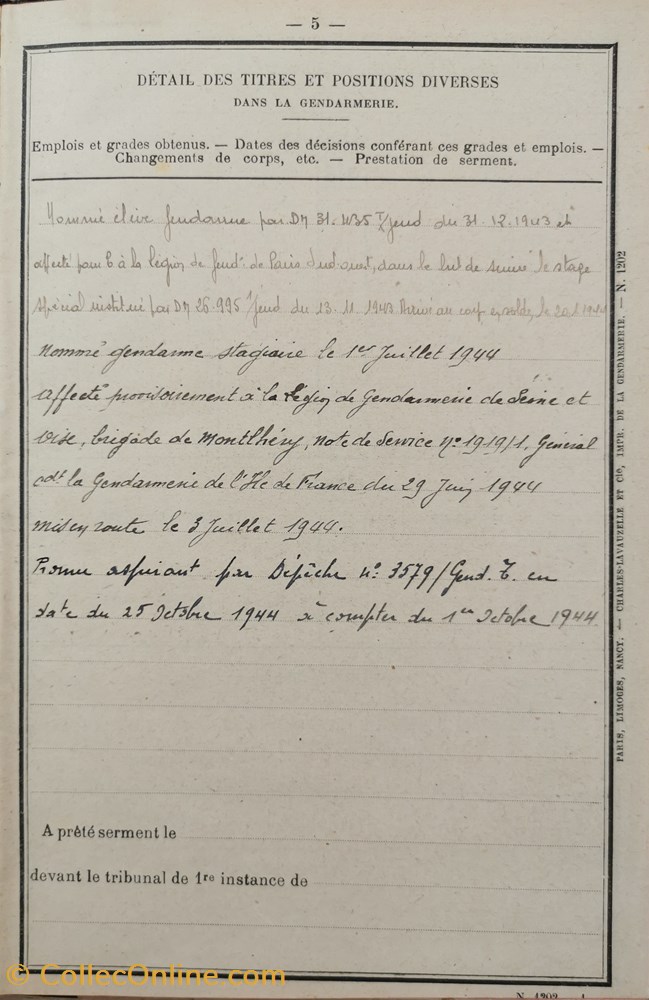 — 5 —
DÉTAIL DES TITRES ET POSITIONS DIVERSES
DANS LA GENDARMERIE.
Emplois et grades obtenus. — Dates des décisions conférant ces grades et emplois. —
Changements de corps, etc. — Prestation de serment.
Nommé élève gendarme par DM 31.435 T/gend du 31.12.1943 et
affecté pour à la légion de gend. de Paris Sud-ouest, dans le but de suivre le stage
spécial institué par DM 26.995 /gend du 13.11.1943 Arrivé au corps le
Nommé gendarme stagiaire le 1er Juillet 1944
affecté provisoirement à la légion de Gendarmerie de Seine et
Oise, brigade de Montlhéry, note de Service N° 1919/1, Général
cdt la Gendarmerie de l'Ile de France du 29 Juin 1944
mis en route le 3 Juillet 1944.
Promu aspirant par Dépêche n° 3579/Gend. T. en
date du 25 Octobre 1944 à compter du 1er Octobre 1944
A prêté serment le
devant le tribunal de 1re instance de
PARIS, LIMOGES, NANCY. — CHARLES-LAVAUZELLE ET Cie, IMPR. DE LA GENDARMERIE. — N. 1202
N. 1202 1
© CollecOnline.com